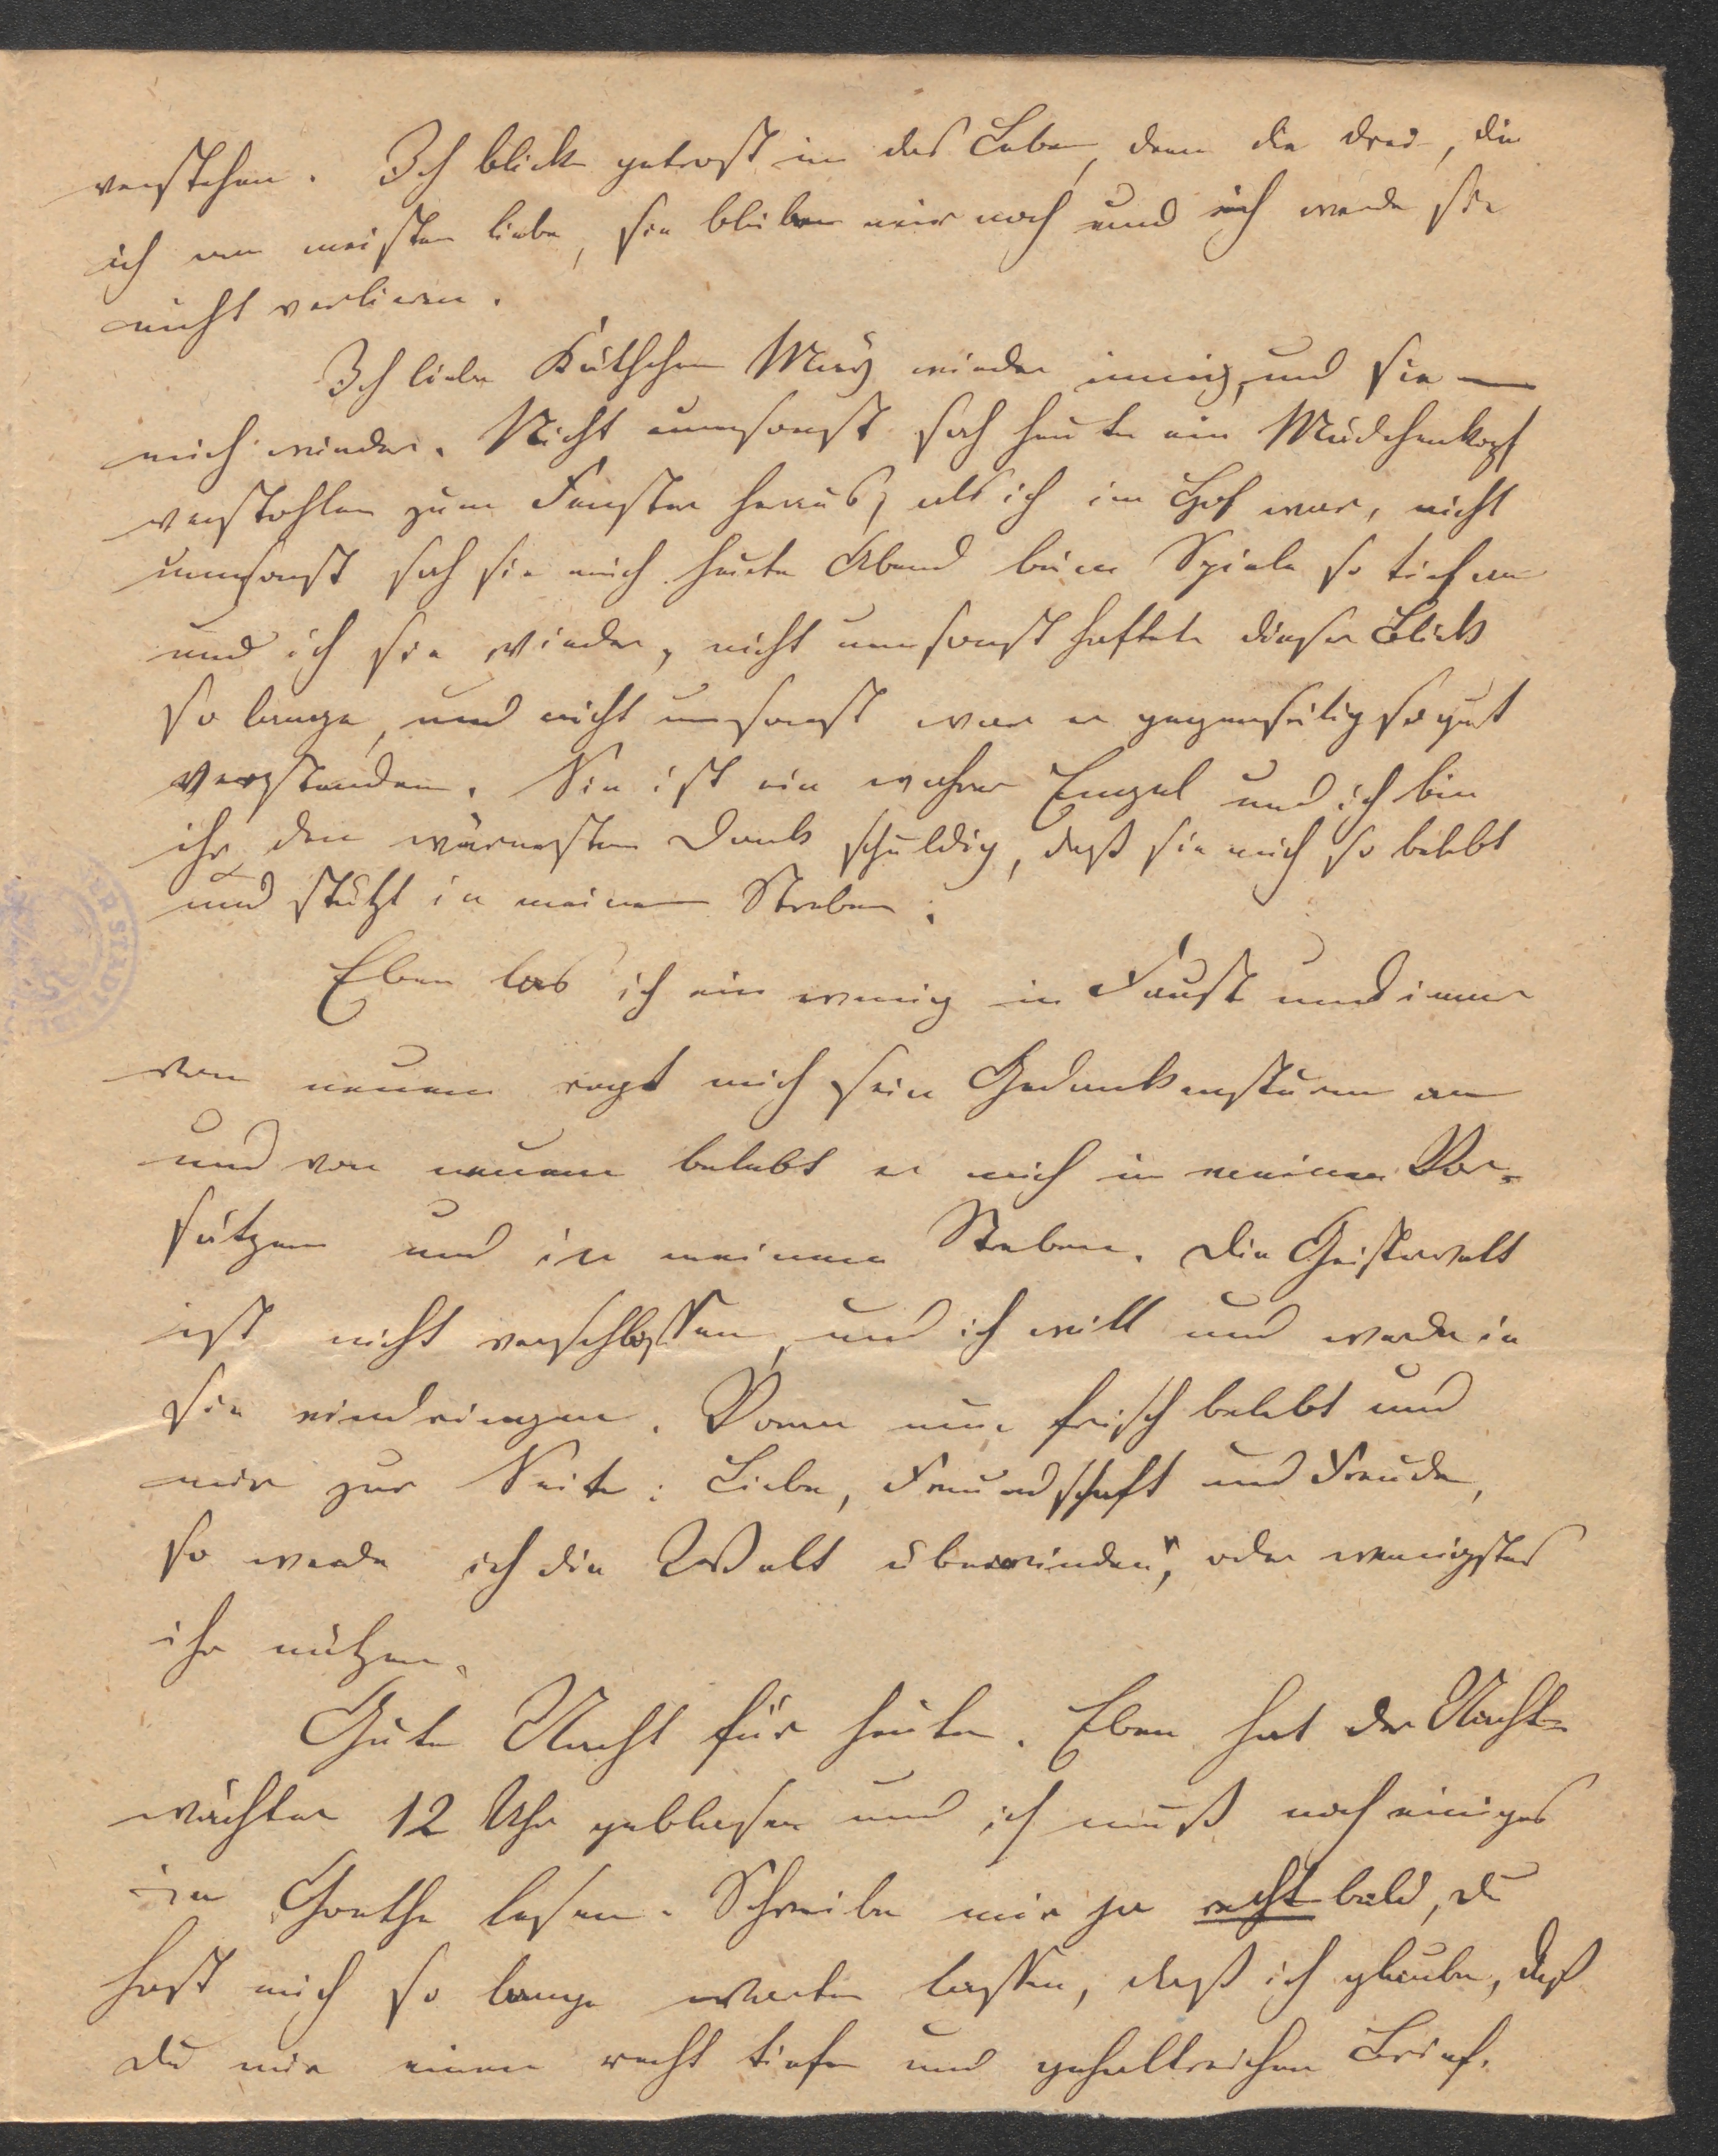 verstehen. Ich blicke getrost in das Leben, denn die drei, die
ich am meisten liebe, sie blieben mir noch und ich werde sie
nicht verlieren.
Ich liebe Käthchen May wieder innig, und sie —
mich wieder. Nicht umsonst sah heute ein Mädchenkopf
verstohlen zum Fenster heraus, als ich im Hof war, nicht
umsonst sah sie mich heute Abend beim Spiele so tief an
und ich sie wieder, nicht umsonst haftete dieser Blick
so lange, und nicht umsonst war er gegenseitig so gut
verstanden. Sie ist ein wahrer Engel und ich bin
ihr den wärmesten Dank schuldig, daß sie mich so belebt
und stützt in meinem Streben.
Eben las ich ein wenig in Faust und immer
von neuem regt mich sein Gedankensturm an
und von neuem belebt er mich in meinen Vor-
sätzen und in meinem Streben. Die Geisterwelt
ist nicht verschlossen, und ich will und werde in
sie eindringen. Vorn nur frisch belebt und
mir zur Seite: Liebe, Freundschaft und Freude,
so werde ich die Welt überwinden", oder wenigstens
ihr nützen.
Gute Nacht für heute. Eben hat der Nacht-
wächter 12 Uhr geblasen und ich muß noch einiges
in Goethe lesen. Schreibe mir ja recht bald, du
hast mich so lange warten lassen, daß ich glaube, daß
du mir einen recht tiefen und gehaltreichen Brief.